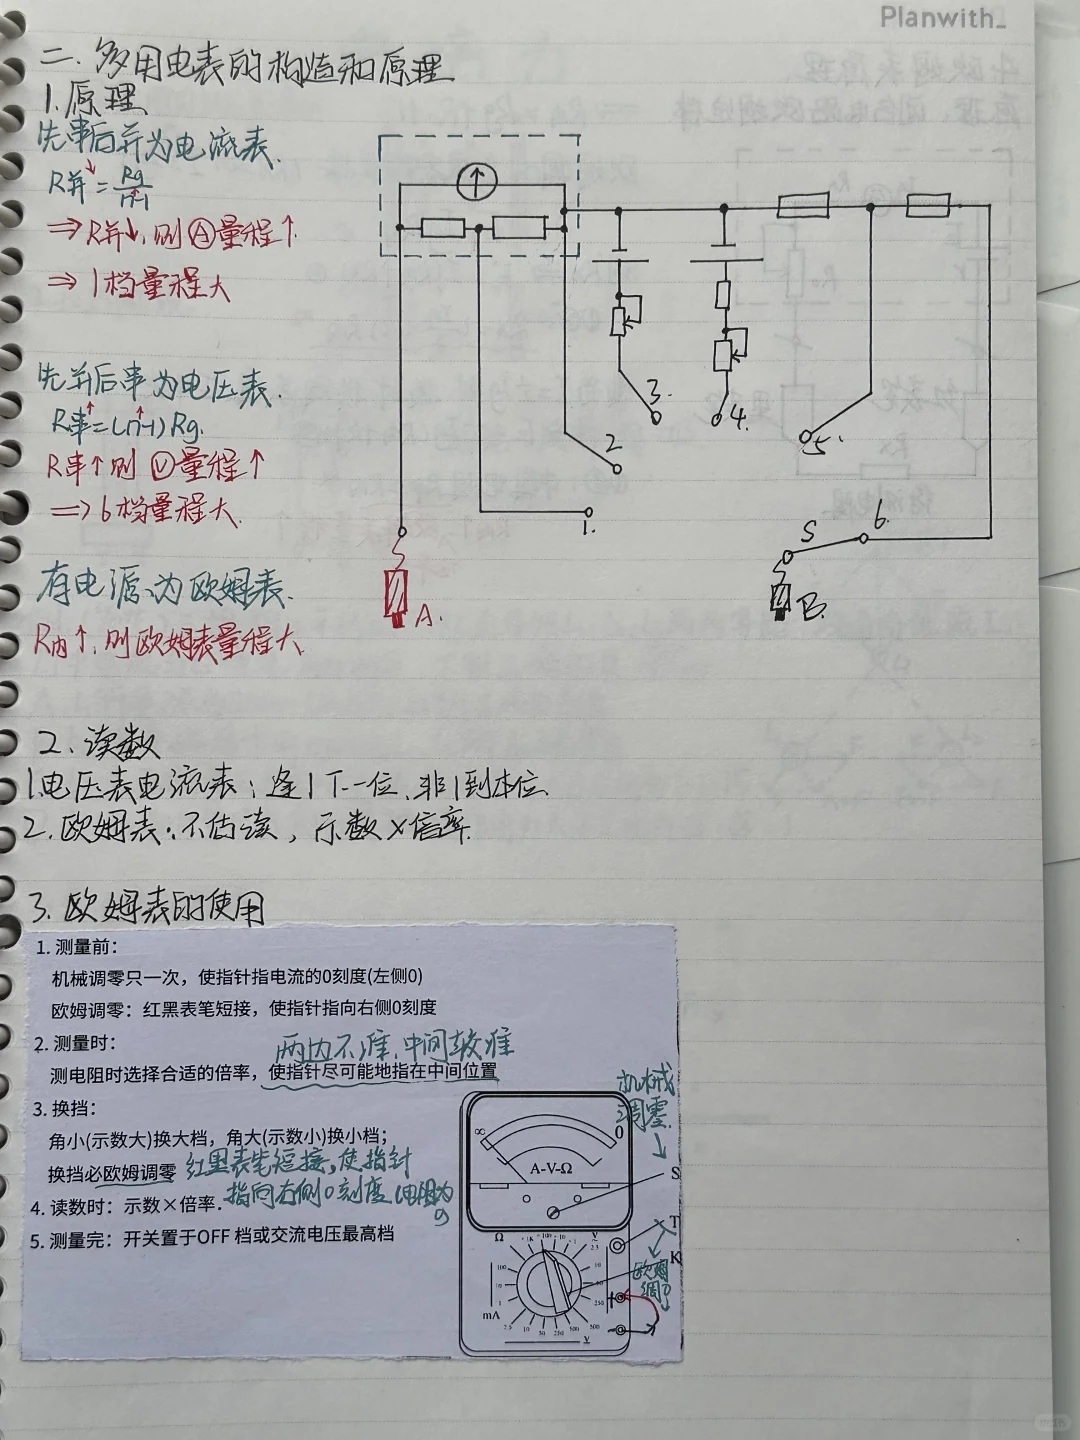 Planwith_
二. 多用电表的构造和原理
1.原理
先串后并为电流表.
R并↓=Rg/n↑-1
⇒R并↓,则Ⓐ量程↑
⇒1档量程大
先并后串为电压表.
R串↑=(n↑-1)Rg.
R串↑则Ⓥ量程↑
⇒6档量程大.
有电源、为欧姆表.
R内↑,则欧姆表量程大.
1.
2
3.
4.
5.
6.
S
A.
B.
2、读数
1.电压表电流表:逢1下一位、非1到本位.
2.欧姆表:不估读,示数×倍率.
3.欧姆表的使用
1. 测量前:
机械调零只一次,使指针指电流的0刻度(左侧0)
欧姆调零:红黑表笔短接,使指针指向右侧0刻度
2. 测量时:
两边不准.中间较准
测电阻时选择合适的倍率,使指针尽可能地指在中间位置
3. 换挡:
角小(示数大)换大档,角大(示数小)换小档;
换挡必欧姆调零 红黑表笔短接,使指针
指向右侧0刻度(电阻为0
4. 读数时:示数×倍率.
5. 测量完:开关置于OFF 档或交流电压最高档
机械
调零.
∞
0
A-V-Ω
S
T
K
欧姆
调0
Ω
mA
V
×1K ×100 ×10 ×1
2.5
10
50
250
500
100
10
1
2.5 10 50 250 500
+
-